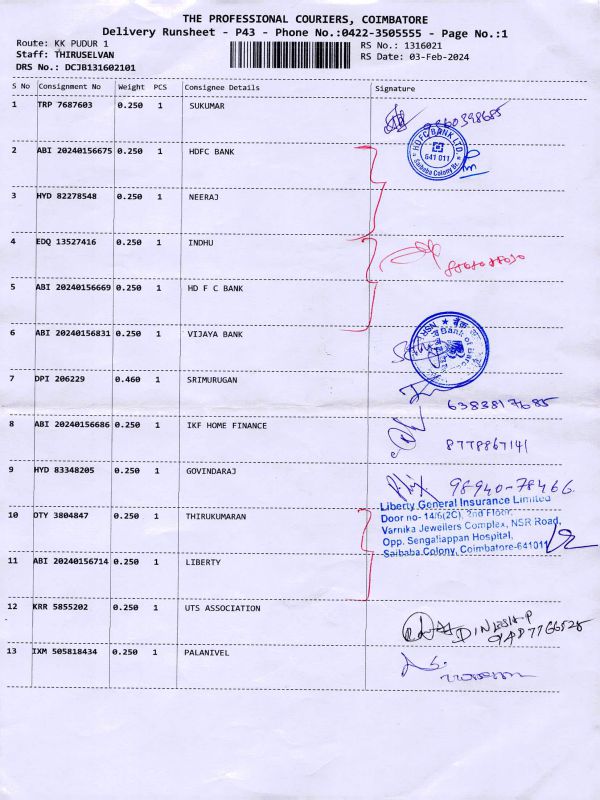 THE PROFESSIONAL COURIERS, COIMBATORE
Delivery Runsheet - P43 - Phone No.:0422-3505555 - Page No.:1
Route: KK PUDUR 1 RS No.: 1316021
Staff: THIRUSELVAN RS Date: 03-Feb-2024
DRS No.: DCJB131602101
S No Consignment No Weight PCS Consignee Details Signature
1 TRP 7687603 0.250 1 SUKUMAR
HDFC BANK LTD.
641 011
Saibaba Colony Br.
2 ABI 20240156675 0.250 1 HDFC BANK
3 HYD 82278548 0.250 1 NEERAJ
4 EDQ 13527416 0.250 1 INDHU
5 ABI 20240156669 0.250 1 HD F C BANK
6 ABI 20240156831 0.250 1 VIJAYA BANK
Bank of Baroda
7 DPI 206229 0.460 1 SRIMURUGAN
6383817685
8 ABI 20240156686 0.250 1 IKF HOME FINANCE
8778867141
9 HYD 83348205 0.250 1 GOVINDARAJ
98940-78466
Liberty General Insurance Limited
Door no- 14/6(2C), 2nd Floor,
Varnika Jewellers Complex, NSR Road,
Opp. Sengaliappan Hospital,
Saibaba Colony, Coimbatore-641011
10 DTY 3804847 0.250 1 THIRUKUMARAN
11 ABI 20240156714 0.250 1 LIBERTY
12 KRR 5855202 0.250 1 UTS ASSOCIATION
13 IXM 505818434 0.250 1 PALANIVEL